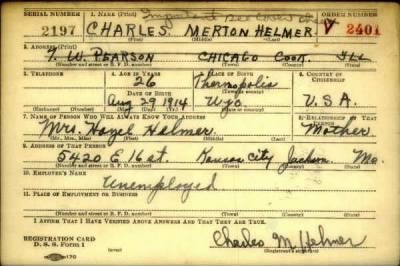 SERIAL NUMBER 1. NAME (Print) ORDER NUMBER
2197 CHARLES MERTON HELMER V 2401
(First) (Middle) (Last)
2. ADDRESS (Print)
7. W. PEARSON CHICAGO COOK ILL
(Number and street or R. F. D. number) (Town) (County) (State)
3. TELEPHONE 4. AGE IN YEARS 5. PLACE OF BIRTH 6. COUNTRY OF CITIZENSHIP
26 Thermopolis
DATE OF BIRTH
Aug 29 1914 Wyo. U.S.A.
(Exchange) (Number) (Mo.) (Day) (Yr.) (State or country)
7. NAME OF PERSON WHO WILL ALWAYS KNOW YOUR ADDRESS 8. RELATIONSHIP OF THAT PERSON
Mrs. Hazel Helmer Mother
(Mr., Mrs., Miss) (First) (Middle) (Last)
9. ADDRESS OF THAT PERSON
5420 E 16 st. Kansas City Jackson Mo.
(Number and street or R. F. D. number) (Town) (County) (State)
10. EMPLOYER'S NAME
Unemployed
11. PLACE OF EMPLOYMENT OR BUSINESS
(Number and street or R. F. D. number) (Town) (County) (State)
I AFFIRM THAT I HAVE VERIFIED ABOVE ANSWERS AND THAT THEY ARE TRUE.
REGISTRATION CARD
D. S. S. Form 1 Charles M Helmer
(Registrant's signature)